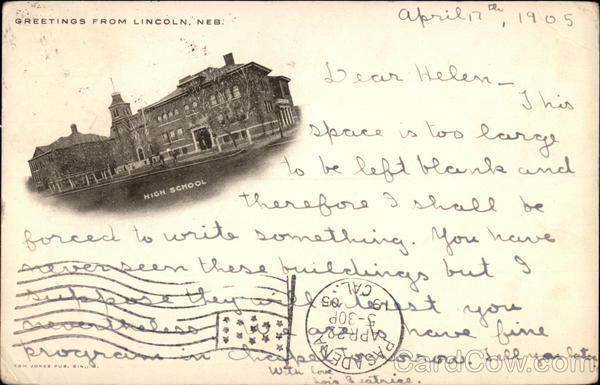 GREETINGS FROM LINCOLN, NEB.
April 17th, 1905
Dear Helen—
This
space is too large
to be left blank and
HIGH SCHOOL
therefore I shall be
forced to write something. You have
never seen these buildings but I
suppose they will interest you
nevertheless. have fine
program in chapel tomorrow. Tell you later
With love
Lois Beatrice.
PASADENA
APR 20
5-30P
1905
CAL.
TOM JONES PUB. CIN., O.
CardCow.com